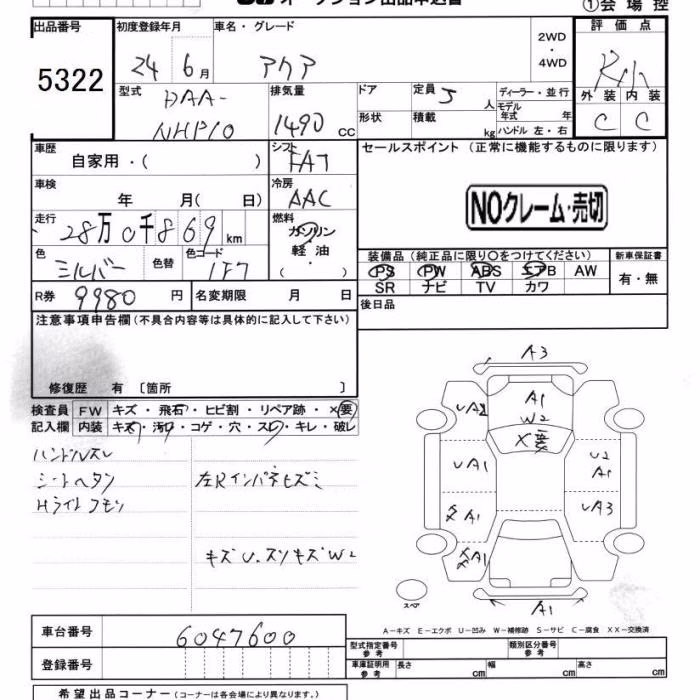 オークション出品申込書
①会場控
出品番号
5322
初度登録年月
24 6月
車名・グレード
アクア
2WD
・
4WD
評価点
外装 内装
C C
型式
DAA-
NHP10
排気量
1490 CC
ドア
定員 5 人
形状
積載 kg
ディーラー・並行
モデル年式 年
ハンドル 左・右
車歴
自家用・( )
シフト
FAT
セールスポイント (正常に機能するものに限ります)
NOクレーム・売切
車検
年 月( 日)
冷房
AAC
走行
28万0千869 km
燃料
ガソリン
軽油
( ・ )
色
シルバー
色替
色コード
1F7
装備品 (純正品に限り〇をつけてください)
PS PW ABS エアB AW
SR ナビ TV カワ
新車保証書
有・無
R券 9980 円
名変期限 月 日
後日品
注意事項申告欄 (不具合内容等は具体的に記入して下さい)
修復歴 有 〔箇所 〕
検査員記入欄
FW キズ・飛石・ヒビ割・リペア跡・×要
内装 キズ・汚れ・コゲ・穴・スレ・キレ・破レ
ハンドルスレ
シートヘタリ
Hライトクモリ
左Rインパネヒズミ
キズU.スリキズW2
A3
UA2
A1
W2
×要
UA1
U2
A1
UA3
A1
スペア
A－キズ E－エクボ U－凹み W－補修跡 S－サビ C－腐食 XX－交換済
車台番号
6047600
登録番号
型式指定番号
参考
類別区分番号
参考
車庫証明用
参考
長さ cm
幅 cm
高さ cm
希望出品コーナー (コーナーは各会場により異なります。)